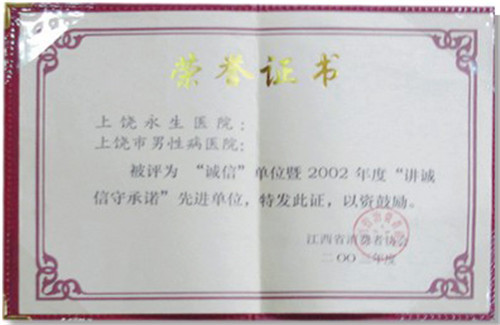 荣誉证书
上饶永生医院：
上饶市男性病医院：
被评为 “诚信” 单位暨 2002 年度 “讲诚
信守承诺” 先进单位，特发此证，以资鼓励。
江西省消费者协会
二00三年度